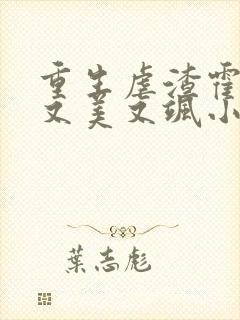 重生虐渣霍
又美又飒小
葉志彪